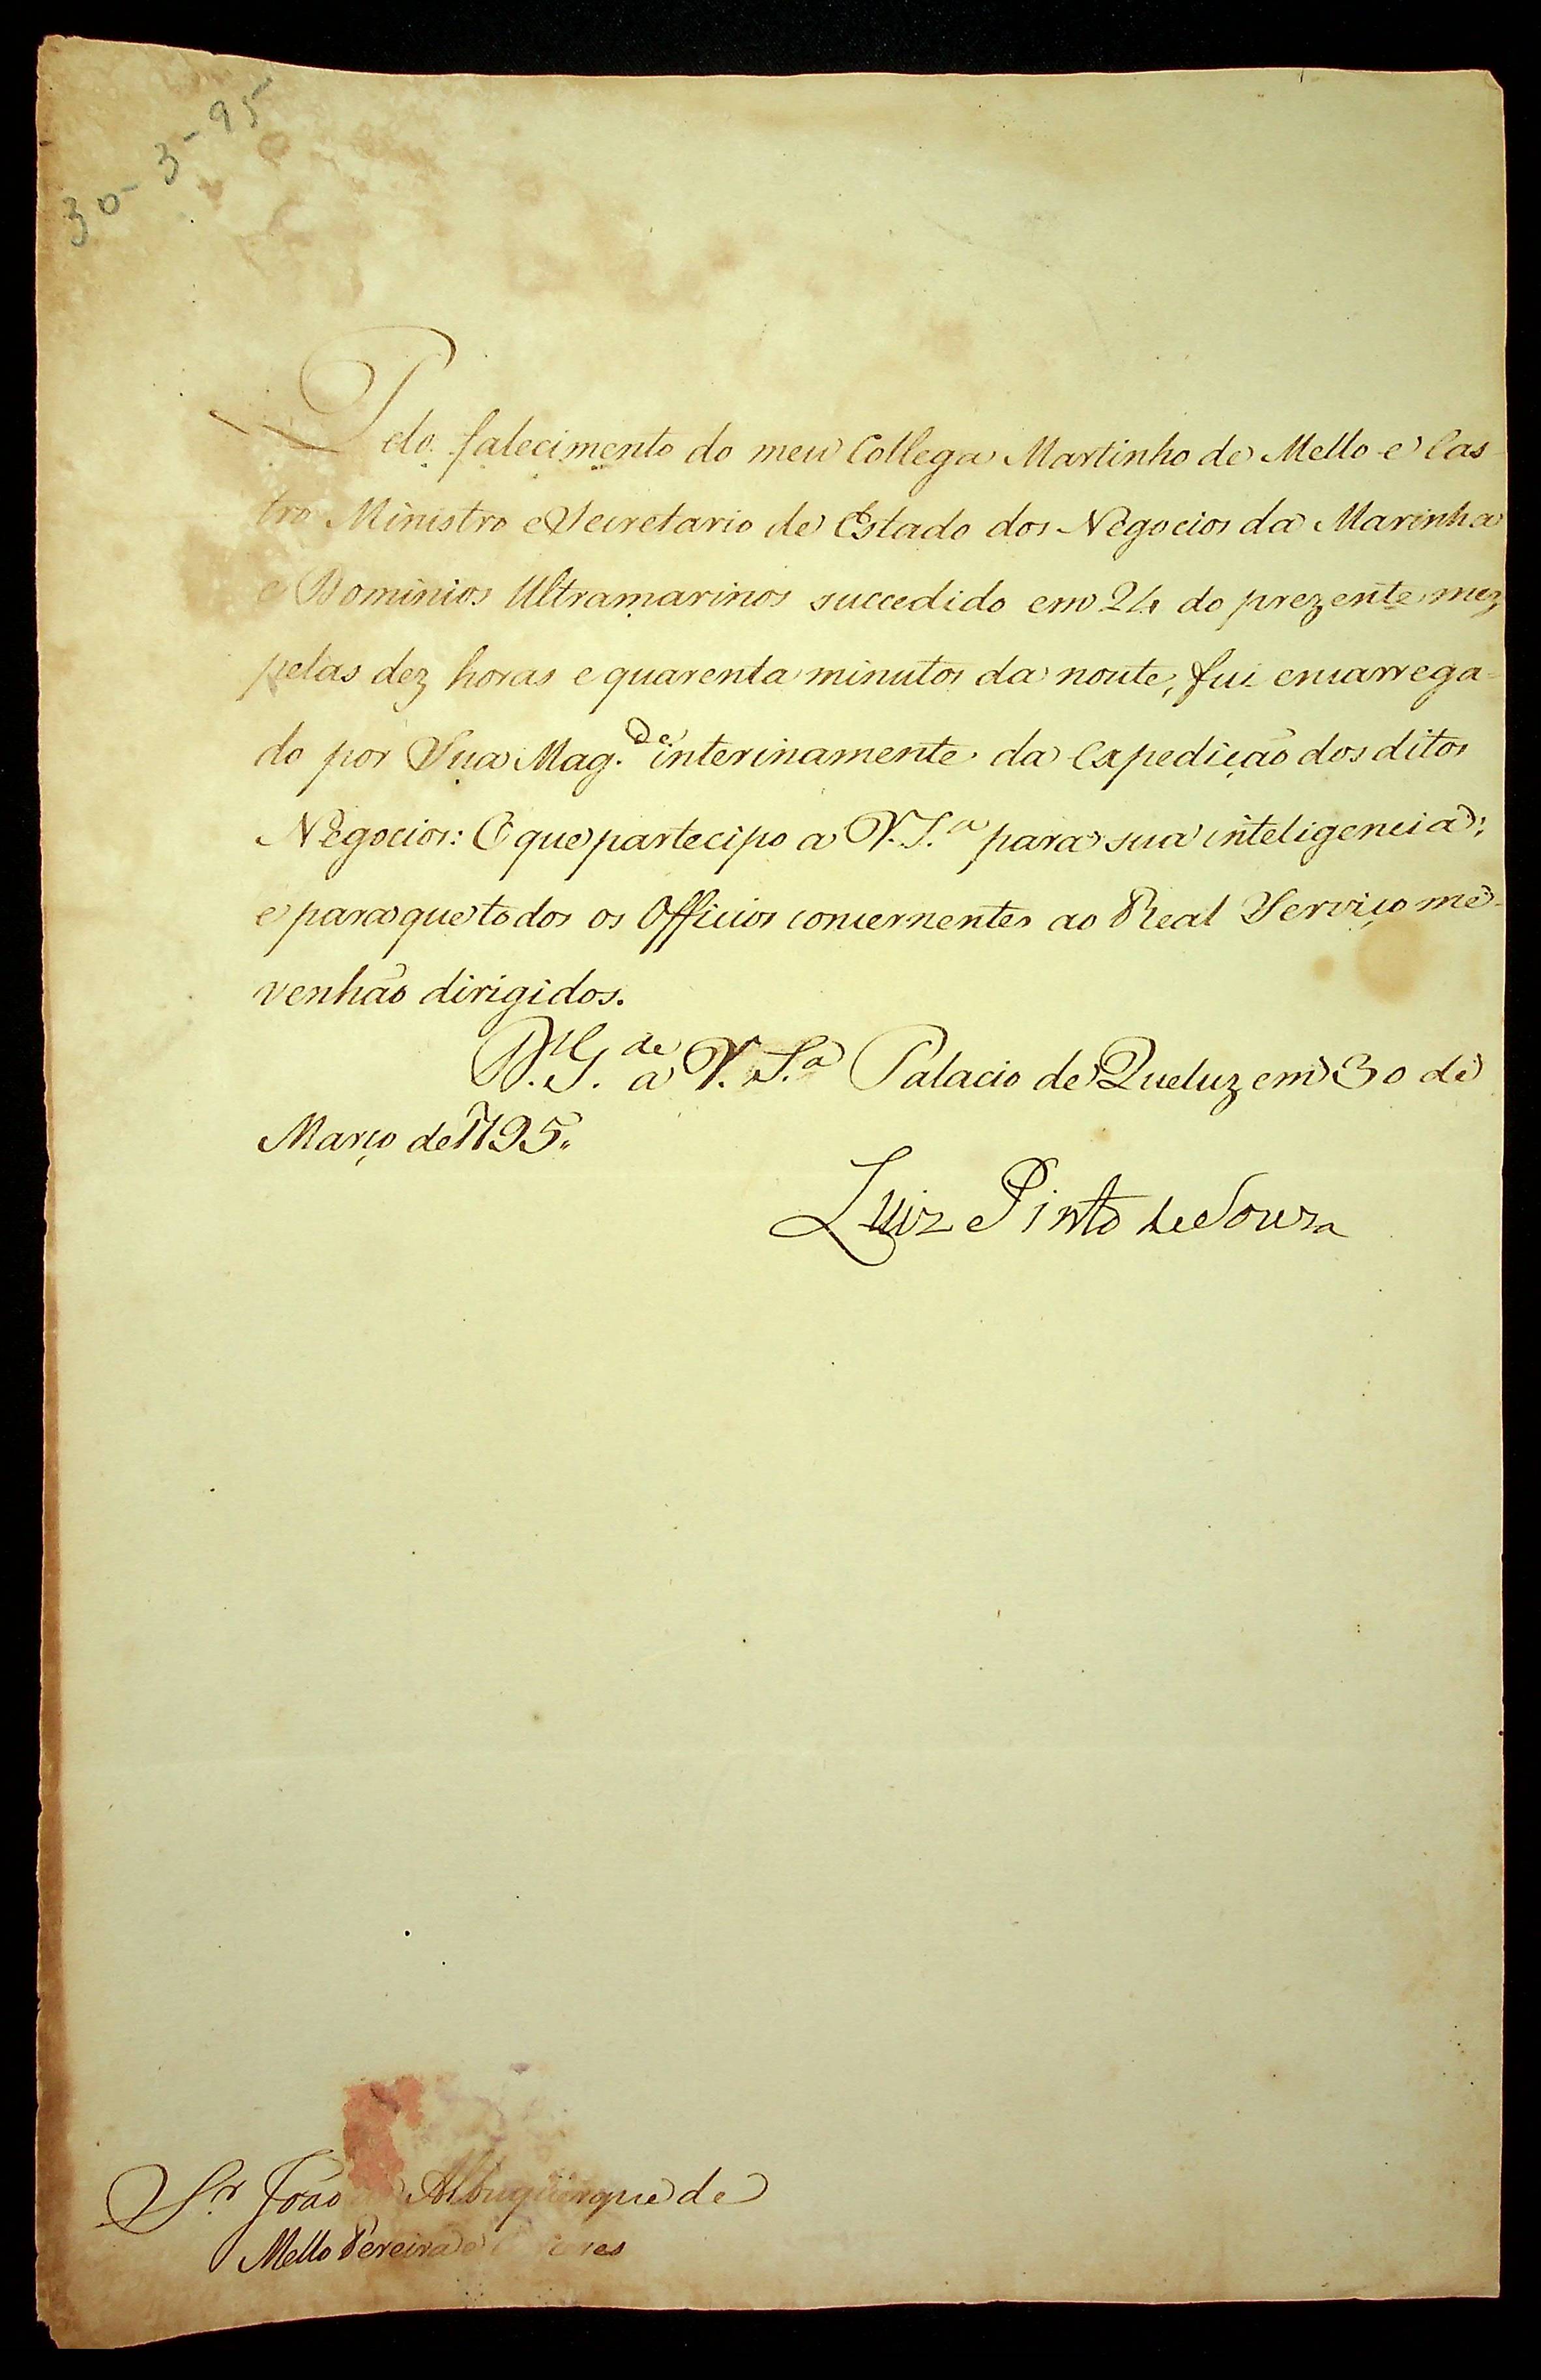 30-3-95
Pelo falecimento do meu Collega Martinho de Mello e Cas-
tro Ministro e Secretario de Estado dos Negocios da Marinha
e Dominios Ultramarinos succedido em 24 do prezente mez
pelas dez horas e quarenta minutos da noute, fui encarrega-
do por Sua Mag.de interinamente da Expedição dos ditos
Negocios: O que partecipo a V.S.a para sua inteligencia;
e para que todos os Officios concernentes ao Real Serviço me
venhão dirigidos.
D.s G.de a V. S.a Palacio de Queluz em 30 de
Março de 1795.
Luiz Pinto de Souza
S.r João de Albuquerque de
Mello Pereira e